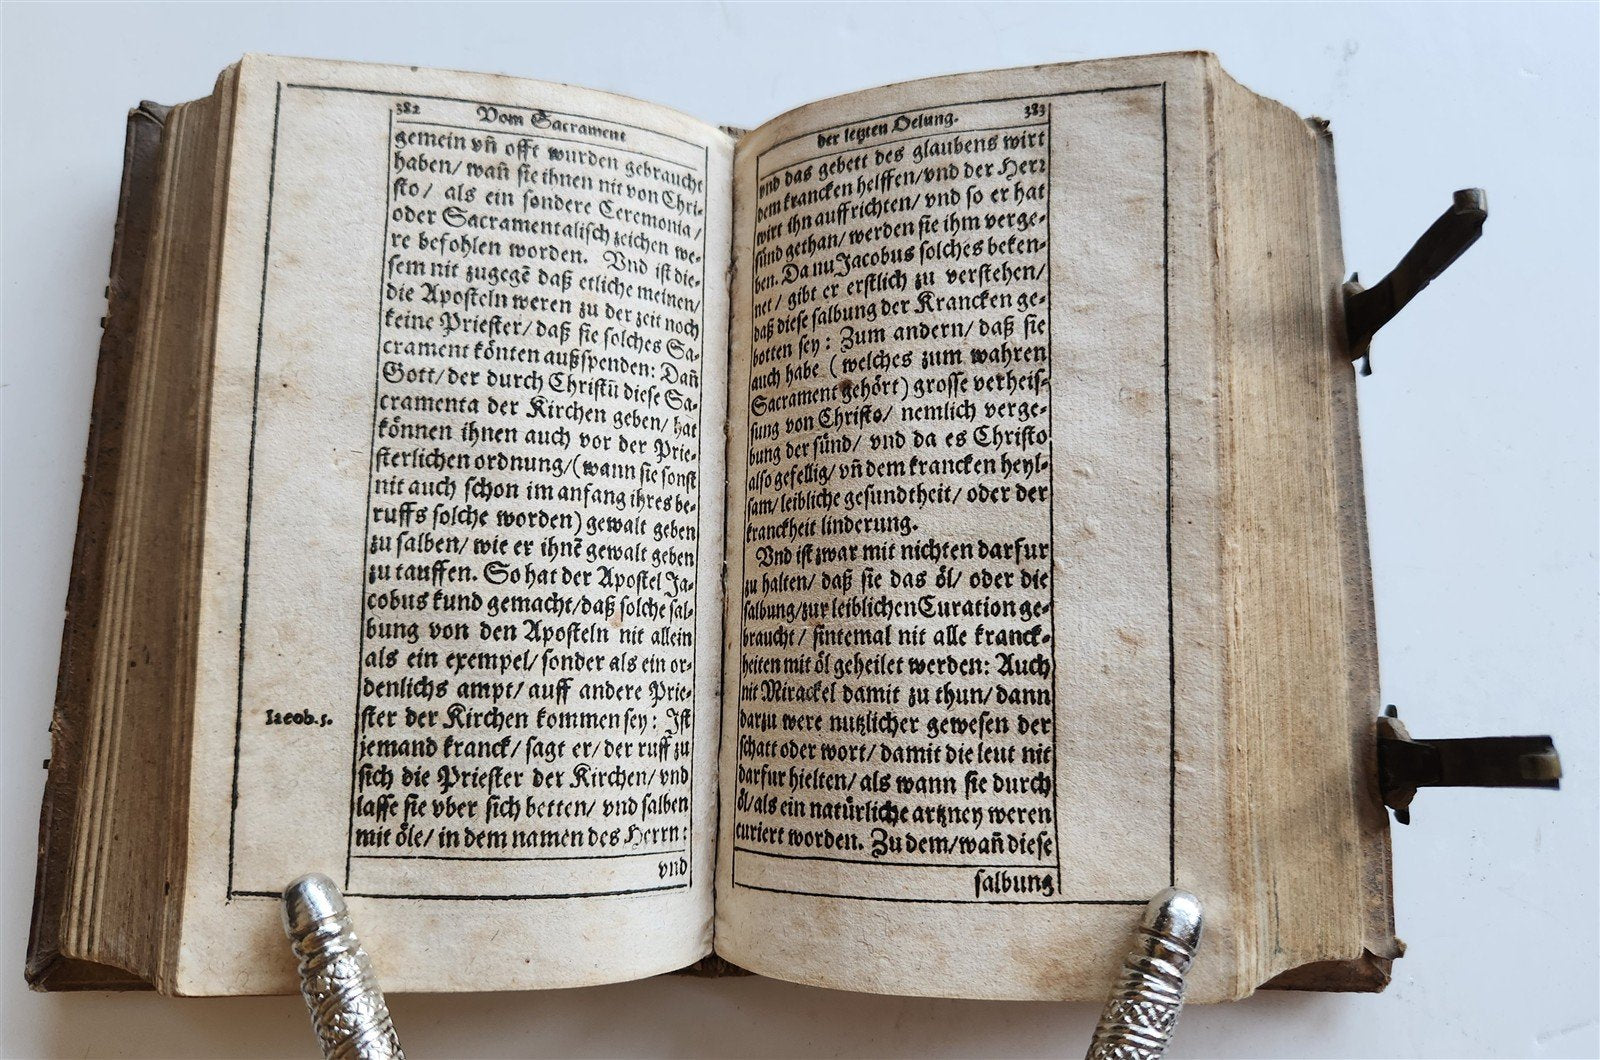 382 Vom Sacrament
gemein vñ offt wurden gebraucht
haben/ wañ sie ihnen nit von Chri-
sto/ als ein sondere Ceremonia/
oder Sacramentalisch zeichen we-
re befohlen worden. Vnd ist die-
sem nit zugegẽ daß etliche meinen/
die Aposteln weren zu der zeit noch
keine Priester/ daß sie solches Sa-
crament könten außspenden: Dañ
Gott/ der durch Christũ diese Sa-
cramenta der Kirchen geben/ hat
können ihnen auch vor der Prie-
sterlichen ordnung/ (wann sie sonst
nit auch schon im anfang ihres be-
ruffs solche worden) gewalt geben
zu salben/ wie er ihnẽ gewalt geben
zu tauffen. So hat der Apostel Ja-
cobus kund gemacht/ daß solche sal-
bung von den Aposteln nit allein
als ein exempel/ sonder als ein or-
denlichs ampt/ auff andere Prie-
Iacob. 5.
ster der Kirchen kommen sey: Ist
jemand kranck/ sagt er/ der ruff zu
sich die Priester der Kirchen/ vnd
lasse sie vber sich betten/ vnd salben
mit öle/ in dem namen des Herrn:
vnd
der letzten Oelung. 383
vnd das gebett des glaubens wirt
dem krancken helffen/ vnd der Herr
wirt ihn auffrichten/ vnd so er hat
sünd gethan/ werden sie ihm verge-
ben. Da nu Jacobus solches beken-
net/ gibt er erstlich zu verstehen/
daß diese salbung der Krancken ge-
botten sey: Zum andern/ daß sie
auch habe (welches zum wahren
Sacrament gehört) grosse verheis-
sung von Christo/ nemlich verge-
bung der sünd/ vnd da es Christo
also gefellig/ vñ dem krancken heyl-
sam/ leibliche gesundtheit/ oder der
kranckheit linderung.
Vnd ist zwar mit nichten darfur
zu halten/ daß sie das öl/ oder die
salbung/ zur leiblichen Curation ge-
braucht/ sintemal nit alle kranck-
heiten mit öl geheilet werden: Auch
nit Mirackel damit zu thun/ dann
darzu were nutzlicher gewesen der
schatt oder wort/ damit die leut nit
darfur hielten/ als wann sie durch
öl/ als ein natürliche artzney weren
curiert worden. Zu dem/ wañ diese
salbung